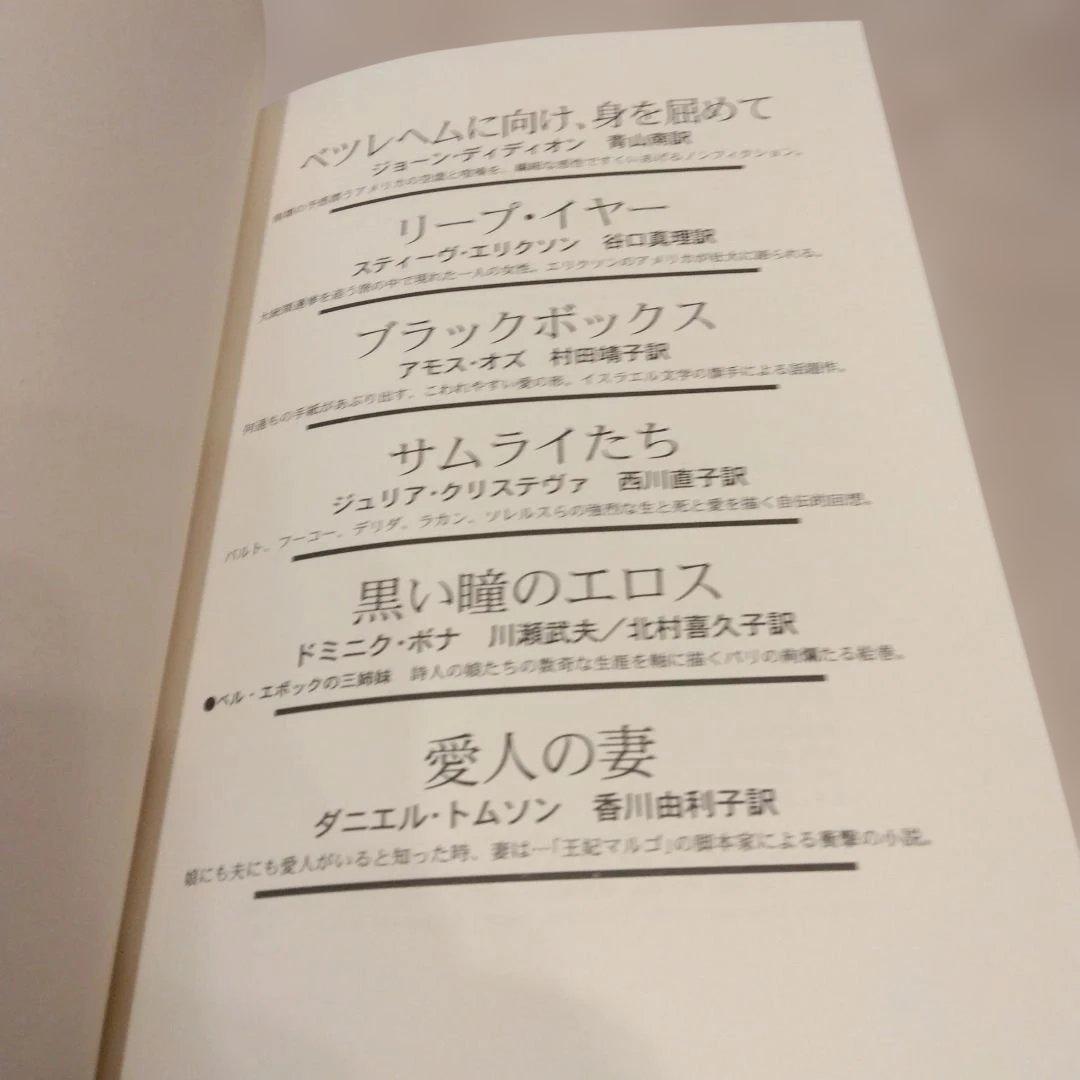 ベツレヘムに向け、身を屈めて
ジョーン・ディディオン 青山南訳
の予感漂うアメリカの空虚と喧噪を、繊細な感性ですくいあげるノンフィクション。
リープ・イヤー
スティーヴ・エリクソン 谷口真理訳
大統領選挙を追う旅の中で現れた一人の女性。エリクソンのアメリカが壮大に語られる。
ブラックボックス
アモス・オズ 村田靖子訳
何通もの手紙があぶり出す、こわれやすい愛の形。イスラエル文学の旗手による話題作。
サムライたち
ジュリア・クリステヴァ 西川直子訳
バルト、フーコー、デリダ、ラカン、ソレルスらの強烈な生と死と愛を描く自伝的回想。
黒い瞳のエロス
ドミニク・ボナ 川瀬武夫／北村喜久子訳
●ベル・エポックの三姉妹 詩人の娘たちの数奇な生涯を軸に描くパリの絢爛たる絵巻。
愛人の妻
ダニエル・トムソン 香川由利子訳
娘にも夫にも愛人がいると知った時、妻は…「王妃マルゴ」の脚本家による衝撃の小説。